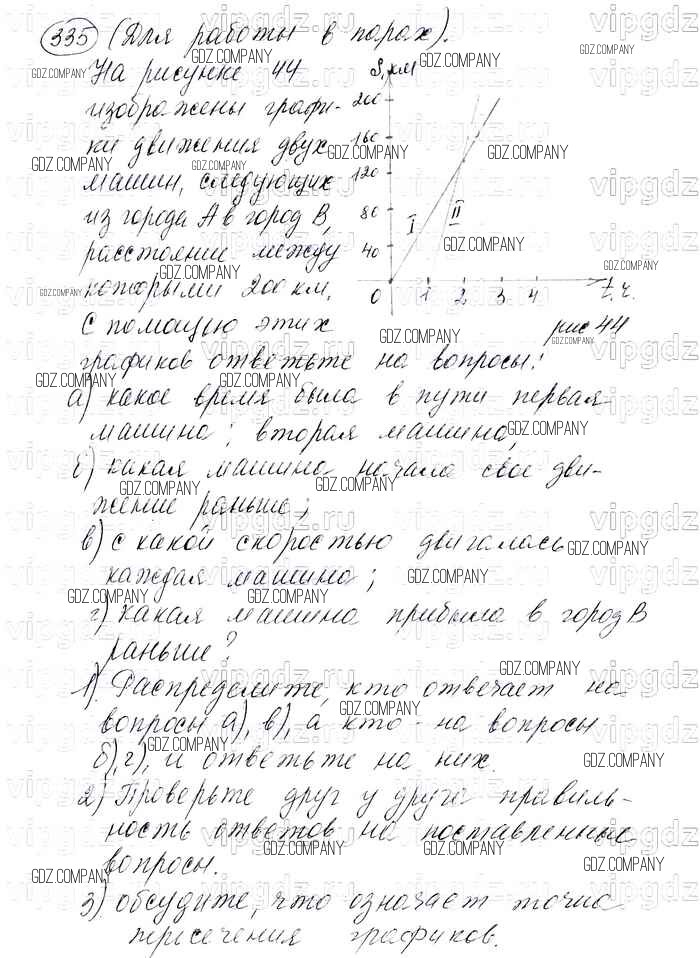 335 (Для работы в парах).
На рисунке 44
изображены графи-
ки движения двух
машин, следующих
из города А в город В,
расстояние между
которыми 200 км.
С помощью этих
графиков ответьте на вопросы:
а) какое время была в пути первая
машина; вторая машина;
б) какая машина начала свое дви-
жение раньше;
в) с какой скоростью двигалась
каждая машина;
г) какая машина прибыла в город В
раньше?
1) Распределите, кто отвечает на
вопросы а), в), а кто - на вопросы
б), г), и ответьте на них.
2) Проверьте друг у друга правиль-
ность ответов на поставленные
вопросы.
3) обсудите, что означает точка
пересечения графиков.
S, км
200
160
120
80
40
0 1 2 3 4 t, ч.
I II
рис 44
GDZ.COMPANY
vipgdz.ru